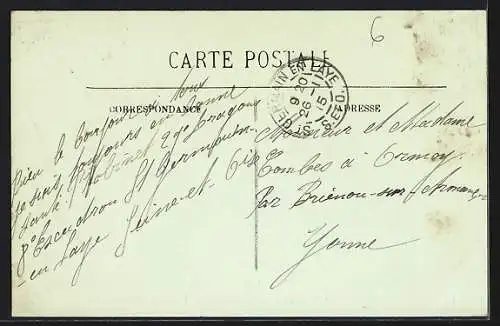 6
CARTE POSTALE
CORRESPONDANCE
ADRESSE
ST GERMAIN EN LAYE
9 20
26 - 11
15
S.-ET-O.
Bien le bonjour à tous
je suis toujours en bonne
santé. 29e Dragons
8e Escadron St Germain
en Laye Seine-et-Oise
Monsieur et Madame
Combes à Ormoy
Par Brienon-sur-Armançon
Yonne